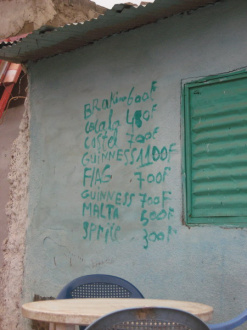 BRakina 600F
Cocala 400F
Castel 700F
GUINNESS 1100F
FlAG 700F
GUINNESS 700F
MALTA 500F
sprite 300F